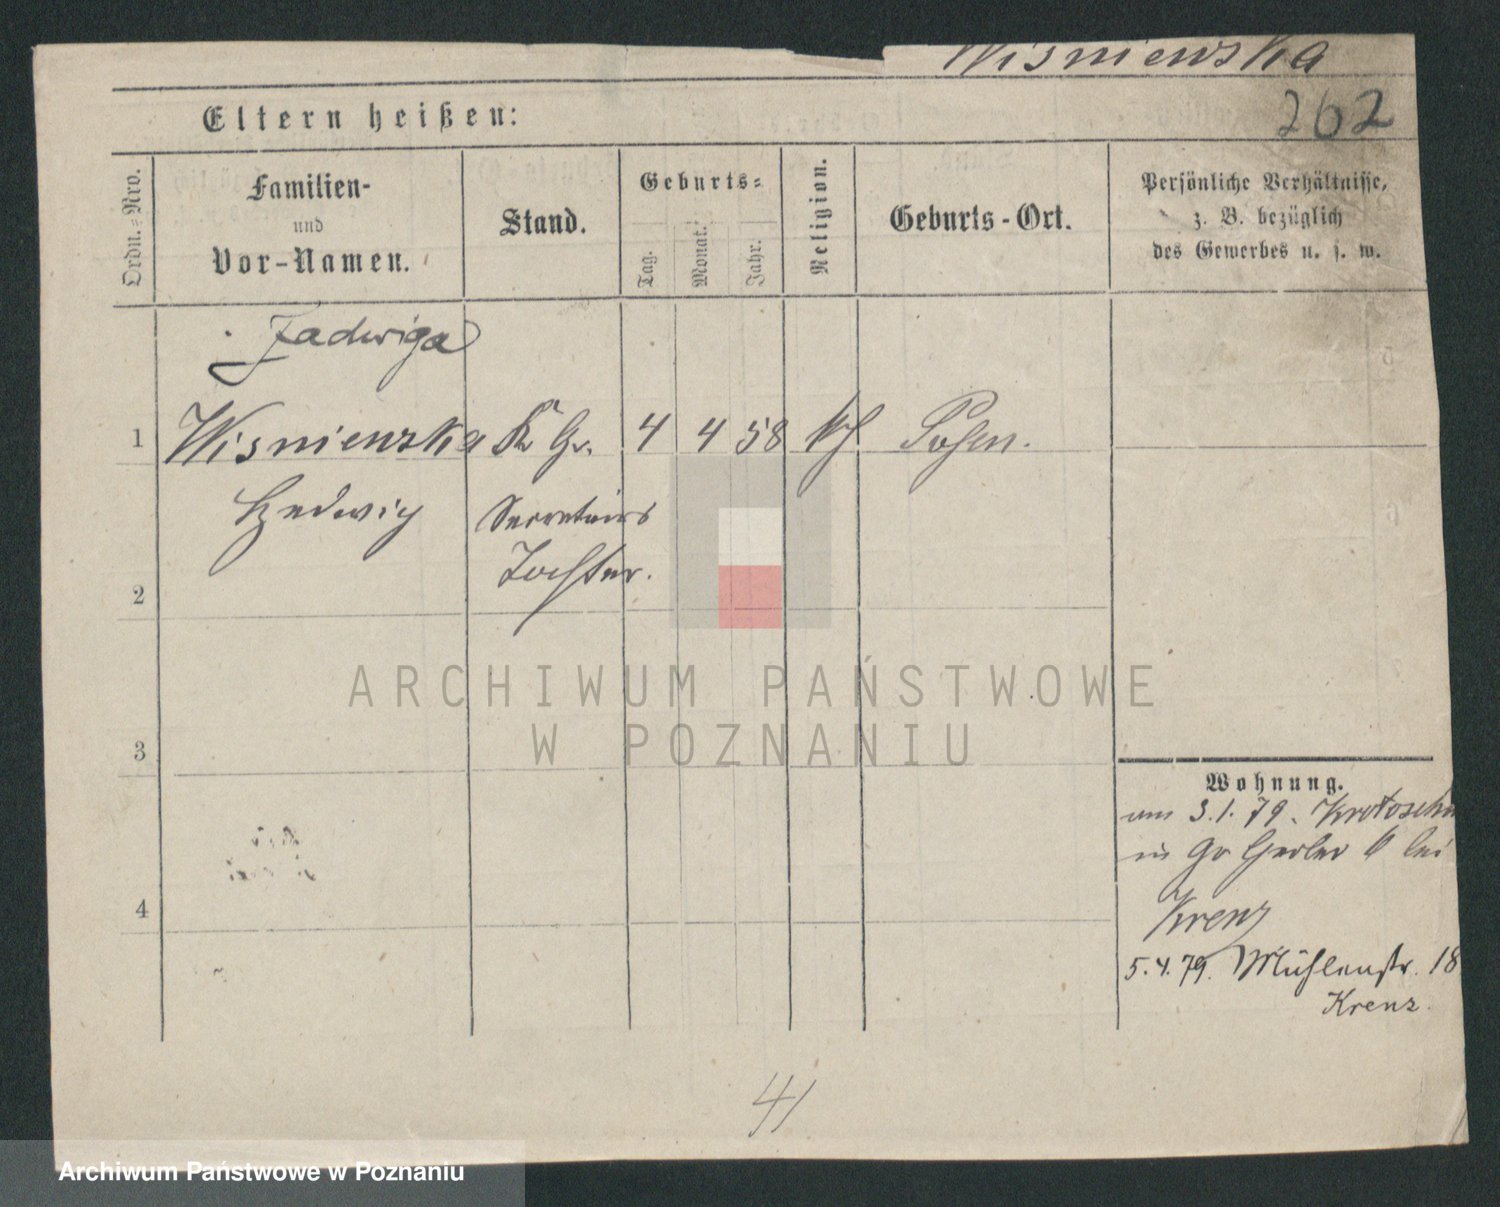 Wisniewska
Eltern heißen:
262
Ordn.=Nro.
Familien-
und
Vor-Namen.
Stand.
Geburts=
Tag.
Monat.
Jahr.
Religion.
Geburts-Ort.
Persönliche Verhältnisse,
z. B. bezüglich
des Gewerbes u. s. w.
Jadwiga
1 Wisniewska K Gr. 4 4 58 kth Posen.
Hedwig Secretairs
Tochter.
2
3
4
ARCHIWUM PAŃSTWOWE
W POZNANIU
Wohnung.
am 3.1.79. Krotoschin
in Gr Gerber 6 bei
Krenz
5.4.79. Mühlenstr. 18
Krenz.
41
Archiwum Państwowe w Poznaniu